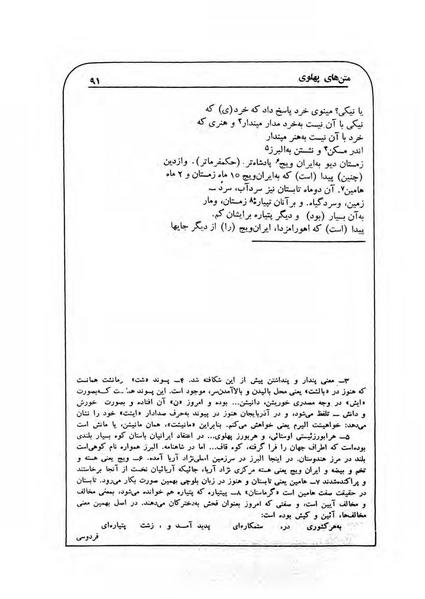 متن‌های پهلوی
۹۱
یا نیکی؟ مینوی خرد پاسخ داد که خرد(ی) که
نیکی با آن نیست به‌خرد مدار میندار۳ و هنری که
خرد با آن نیست به‌هنر میندار
اندر مسکن۴ و نشستن به‌البرز۵
زمستان دیو به‌ایران ویچ۶ پادشاه‌تر. (حکمفرماتر). وازدین
(چنین) پیدا (است) که به‌ایران‌ویچ ۱۰ ماه زمستان و ۲ ماه
هامین۷. آن دوماه تابستان نیز سردآب، سرد
زمین، وسردگیاه. و برآنان تپیاره۸ زمستان، ومار
به‌آن بسیار (بود) و دیگر پتیاره برایشان کم.
پیدا (است) که اهورامزدا، ایران‌ویچ (را) از دیگر جایها
۳ــ معنی پندار و پنداشتن پیش از این شکافته شد. ۴ــ پسوند «شت» رمانشت همانست
که هنوز در «بالشت» یعنی محل بالیدن و بالاآمدن‌سر، موجود است. این پسوند همانست که‌بصورت
«ایش» در وجه مصدری خوریشن، دانیشن... بوده و امروز «ن» آن افتاده و بصورت خورش
و دانش ــ تلفظ می‌شود، و در آذربایجان هنوز در پیوند به‌حرف صدادار «ایشت» خود را نشان
می‌دهد: خواهینشت البرم یعنی خواهش می‌کنم. بنابراین «مانیشت»، همان مانش، یا مانش است
۵ــ هرابورزئیتی اوستائی، و هربورز پهلوی... در اعتقاد ایرانیان باستان کوه بسیار بلندی
بوده‌است که اطراف جهان را فرا گرفته، کوه قاف... اما در شاهنامه. البرز همواره نام کوهی‌است
بلند در مرز هندوستان. در اینجا البرز در سرزمین اصلی‌نژاد آریا آمده. ۶ــ ویچ یعنی هسته و
تخم و بیضه و ایران ویچ یعنی هسته مرکزی نژاد آریا، جائیکه آریائیان نخست از آنجا برخاستند
و پراکنده‌شدند ۷ــ هامین یعنی تابستان و هنوز در زبان بلوچی بهمین صورت بکار می‌رود. تابستان
در حقیقت صفت هامین است «گرماستان» ۸ــ پیتیاره که پتیاره هم خوانده می‌شود، بمعنی مخالف
و مخالف آیین است، و صفتی که امروز بعنوان فحش به‌دخترکان می‌دهند. در اصل بهمین معنی
مخالف‌ها، آئین و کیش بوده است:
به‌هرکشوری در، ستمکاره‌ای پدید آمد و، زشت پتیاره‌ای
فردوسی